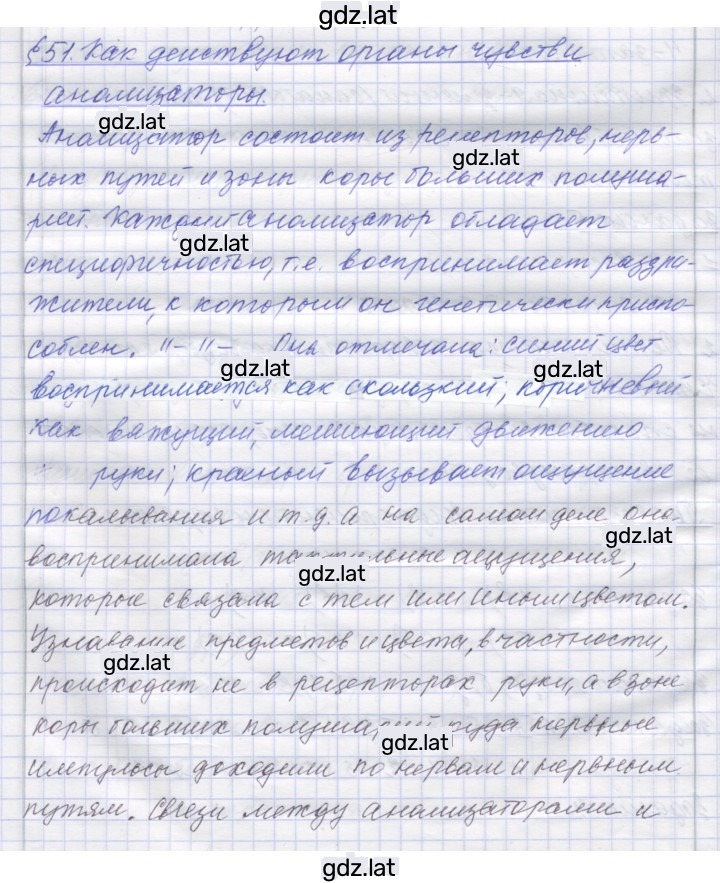 gdz.lat
§51. Как действуют органы чувств и
анализаторы.
gdz.lat
Анализатор состоит из рецепторов, нерв-
gdz.lat
ных путей и зоны коры больших полуша-
рий. Каждый анализатор обладает
gdz.lat
специфичностью, т.е. воспринимает раздра-
жители, к которым он генетически приспо-
соблен. "- "- Она отмечала: синий цвет
gdz.lat gdz.lat
воспринимается как скользкий; коричневый
как вяжущий, мешающий движению
руки; красный вызывает ощущение
покалывания и т.д. а на самом деле она
gdz.lat
воспринимала ощущения,
gdz.lat
которые связала с тем или иным цветом.
Узнавание предметов и цвета, в частности,
gdz.lat
происходит не в рецепторах руки, а в зоне
коры больших куда нервные
gdz.lat
импульсы доходили по нервам и нервным
путям. Связи между анализаторами и
gdz.lat